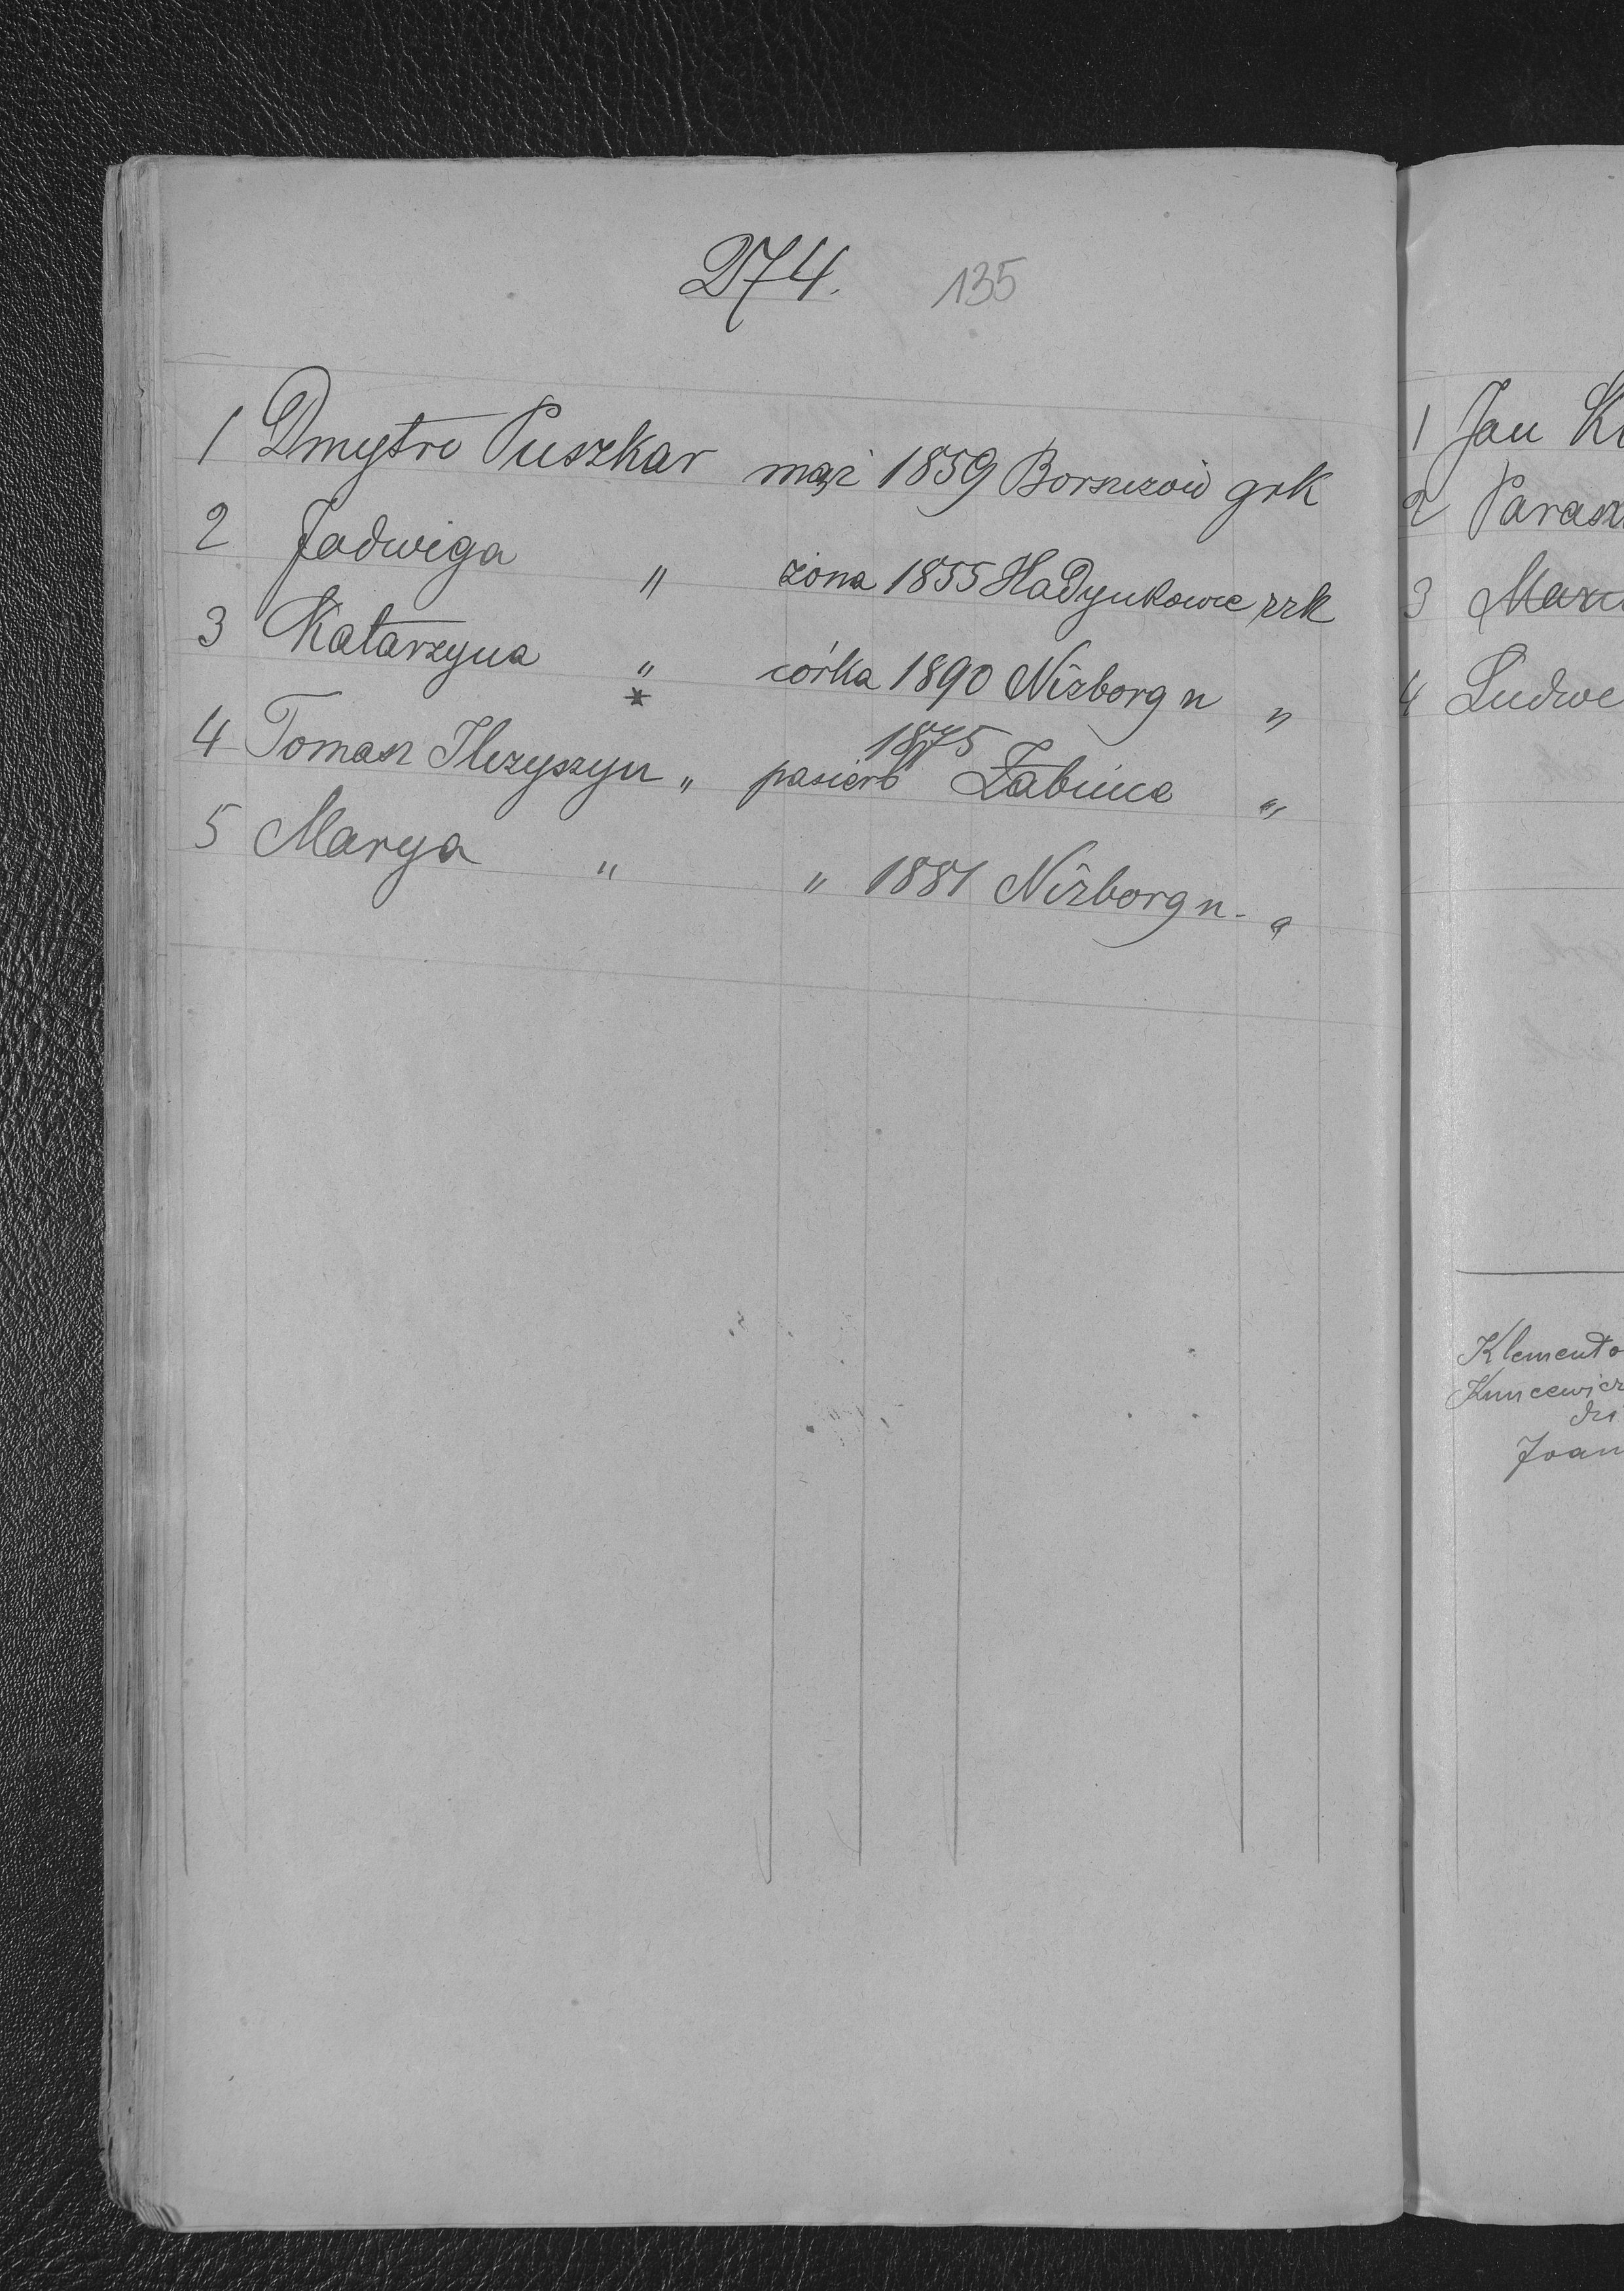 274. 135
1 Dmytro Puszkar mąż 1859 Borszczów grk
2 Jadwiga " żona 1855 Hadynkowce rzk
3 Katarzyna " córka 1890 Niżborg n "
*
4 Tomasz Ilczyszyn " pasierb 1875 Żabińce "
5 Marya " " 1881 Niżborg n. "
1 Jan K
2 Parasz
3 Mary
4 Ludwi
Klemento
Kuncewicz
Joan